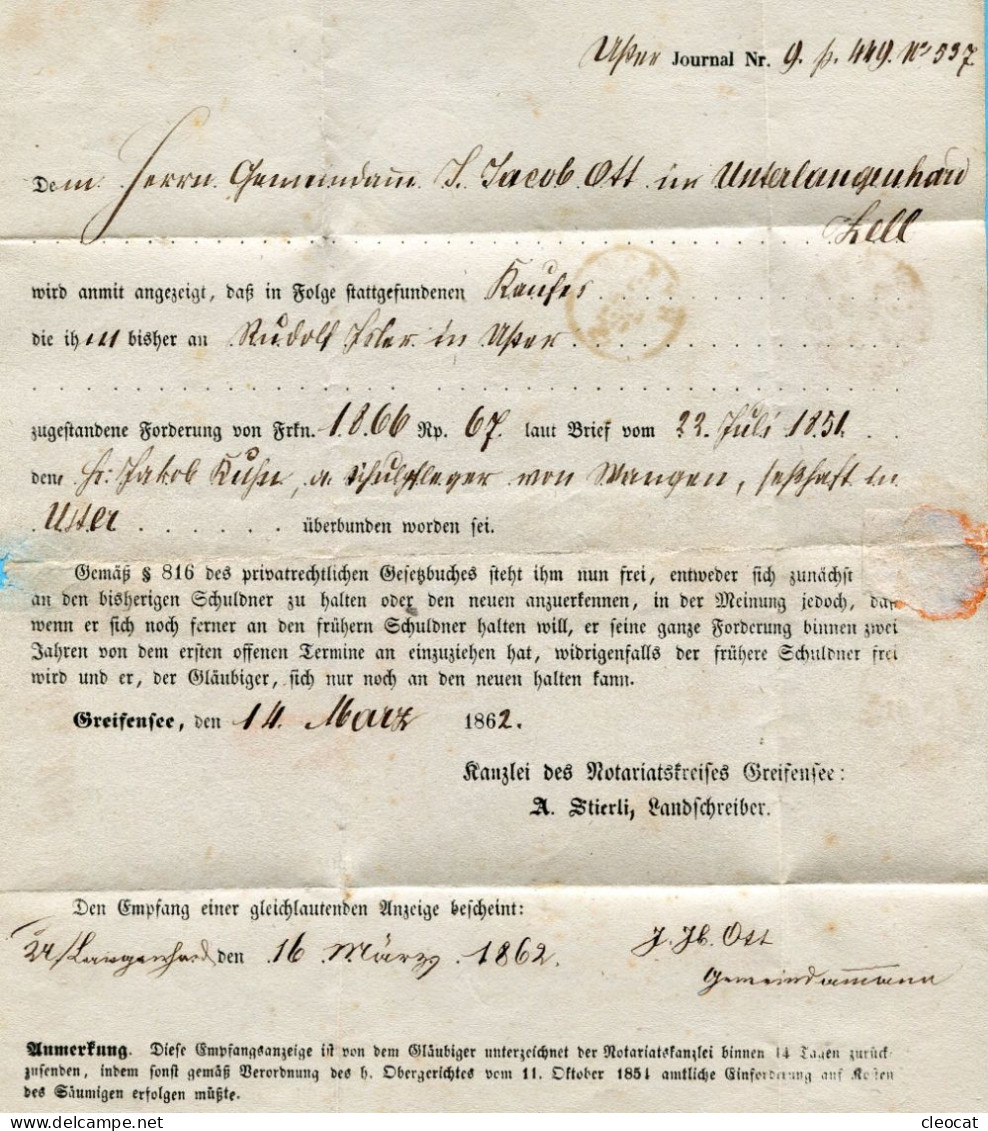 Uster Journal Nr. 9. p. 449. No 537
Dem Herrn Gemeindamm J. Jacob Ott in Unterlangenhard
Zell
wird anmit angezeigt, daß in Folge stattgefundenen Kaufes
die ihm bisher an Rudolf Isler in Uster
zugestandene Forderung von Frkn. 1866 Rp. 67. laut Brief vom 22. Juli 1851.
dem Hr: Jakob Kuhn, a. Schulpfleger von Wangen, seßhaft in
Uster überbunden worden sei.
Gemäß § 816 des privatrechtlichen Gesetzbuches steht ihm nun frei, entweder sich zunächst
an den bisherigen Schuldner zu halten oder den neuen anzuerkennen, in der Meinung jedoch, daß
wenn er sich noch ferner an den frühern Schuldner halten will, er seine ganze Forderung binnen zwei
Jahren von dem ersten offenen Termine an einzuziehen hat, widrigenfalls der frühere Schuldner frei
wird und er, der Gläubiger, sich nur noch an den neuen halten kann.
Greifensee, den 14. März 1862.
Kanzlei des Notariatskreises Greifensee:
A. Stierli, Landschreiber.
Den Empfang einer gleichlautenden Anzeige bescheint:
U/Langenhard den 16 März 1862. J. Jb. Ott
Gemeindammann
Anmerkung. Diese Empfangsanzeige ist von dem Gläubiger unterzeichnet der Notariatskanzlei binnen 14 Tagen zurück-
zusenden, indem sonst gemäß Verordnung des h. Obergerichtes vom 11. Oktober 1851 amtliche Einforderung auf Kosten
des Säumigen erfolgen müßte.
cleocat